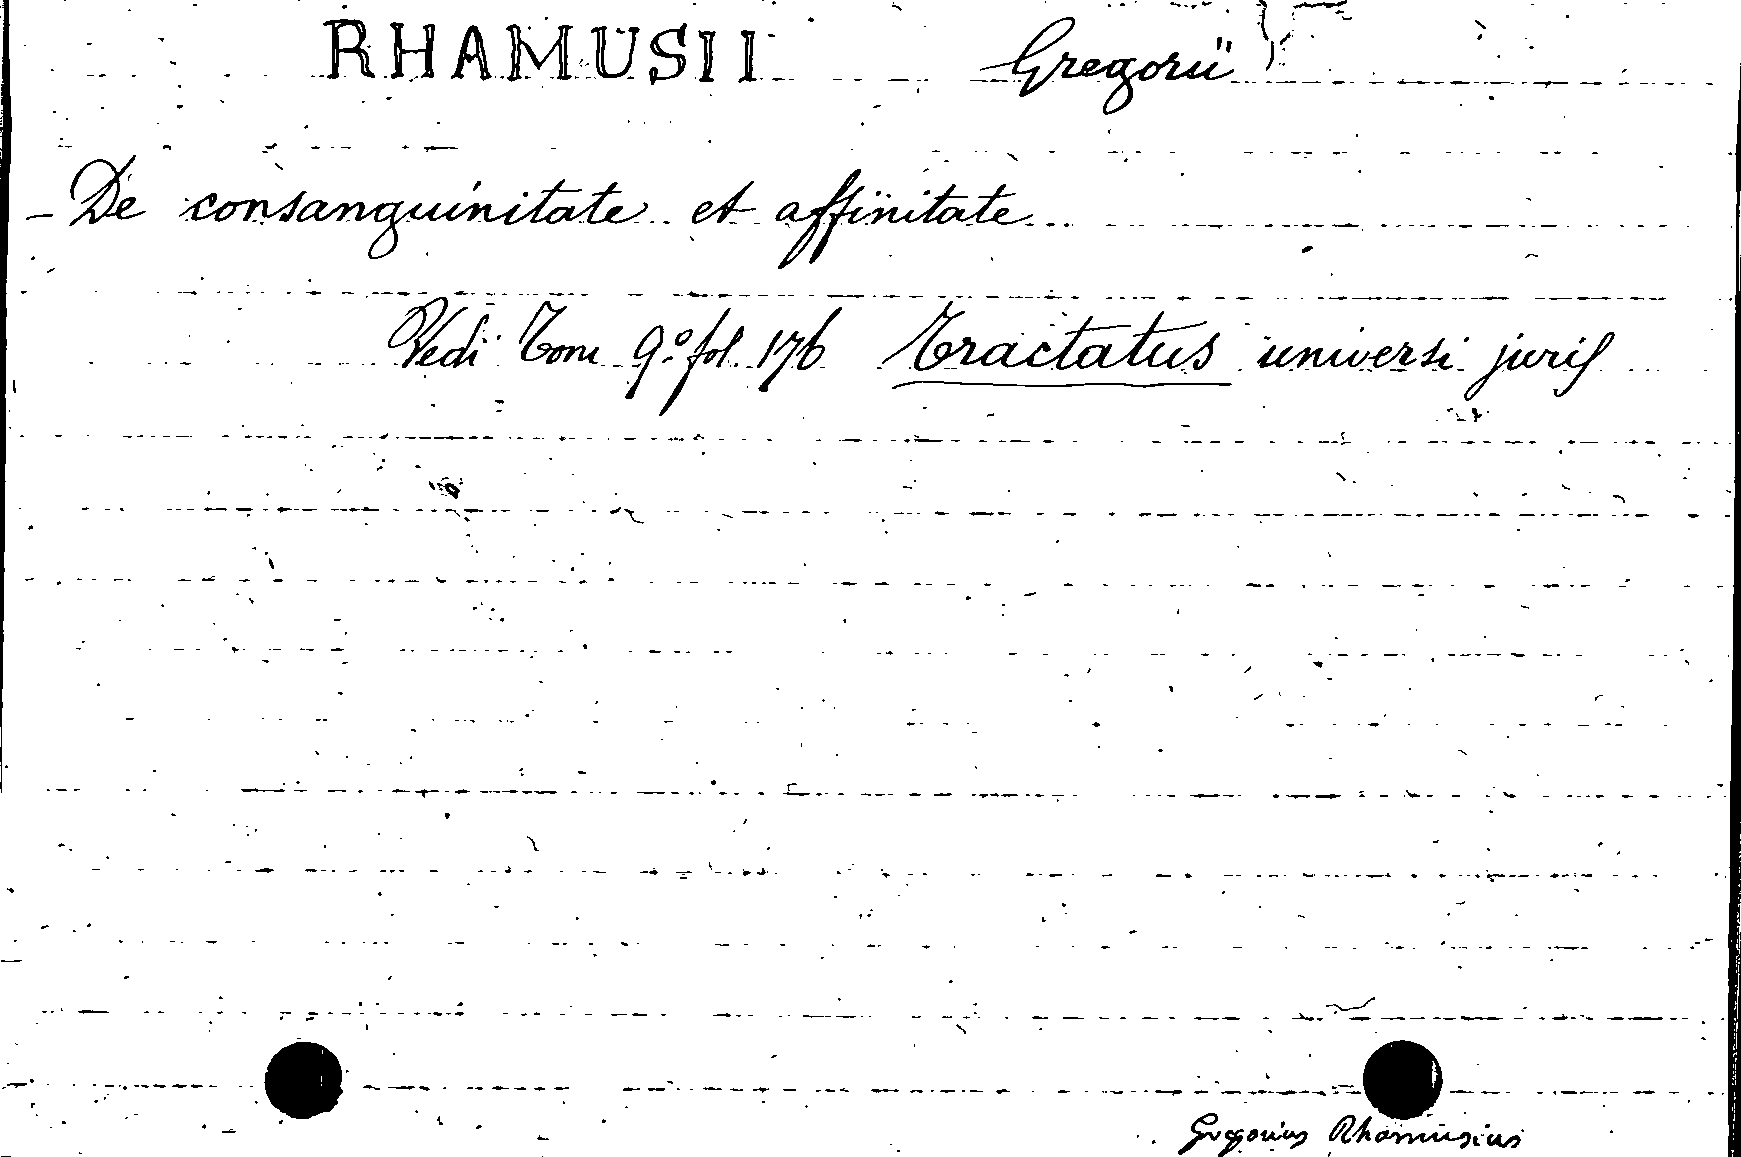 RHAMUSII Gregorii
- De consanguinitate et affinitate
Vedi Tom 9.º fol. 176 Tractatus universi juris
Gregorius Rhamusius